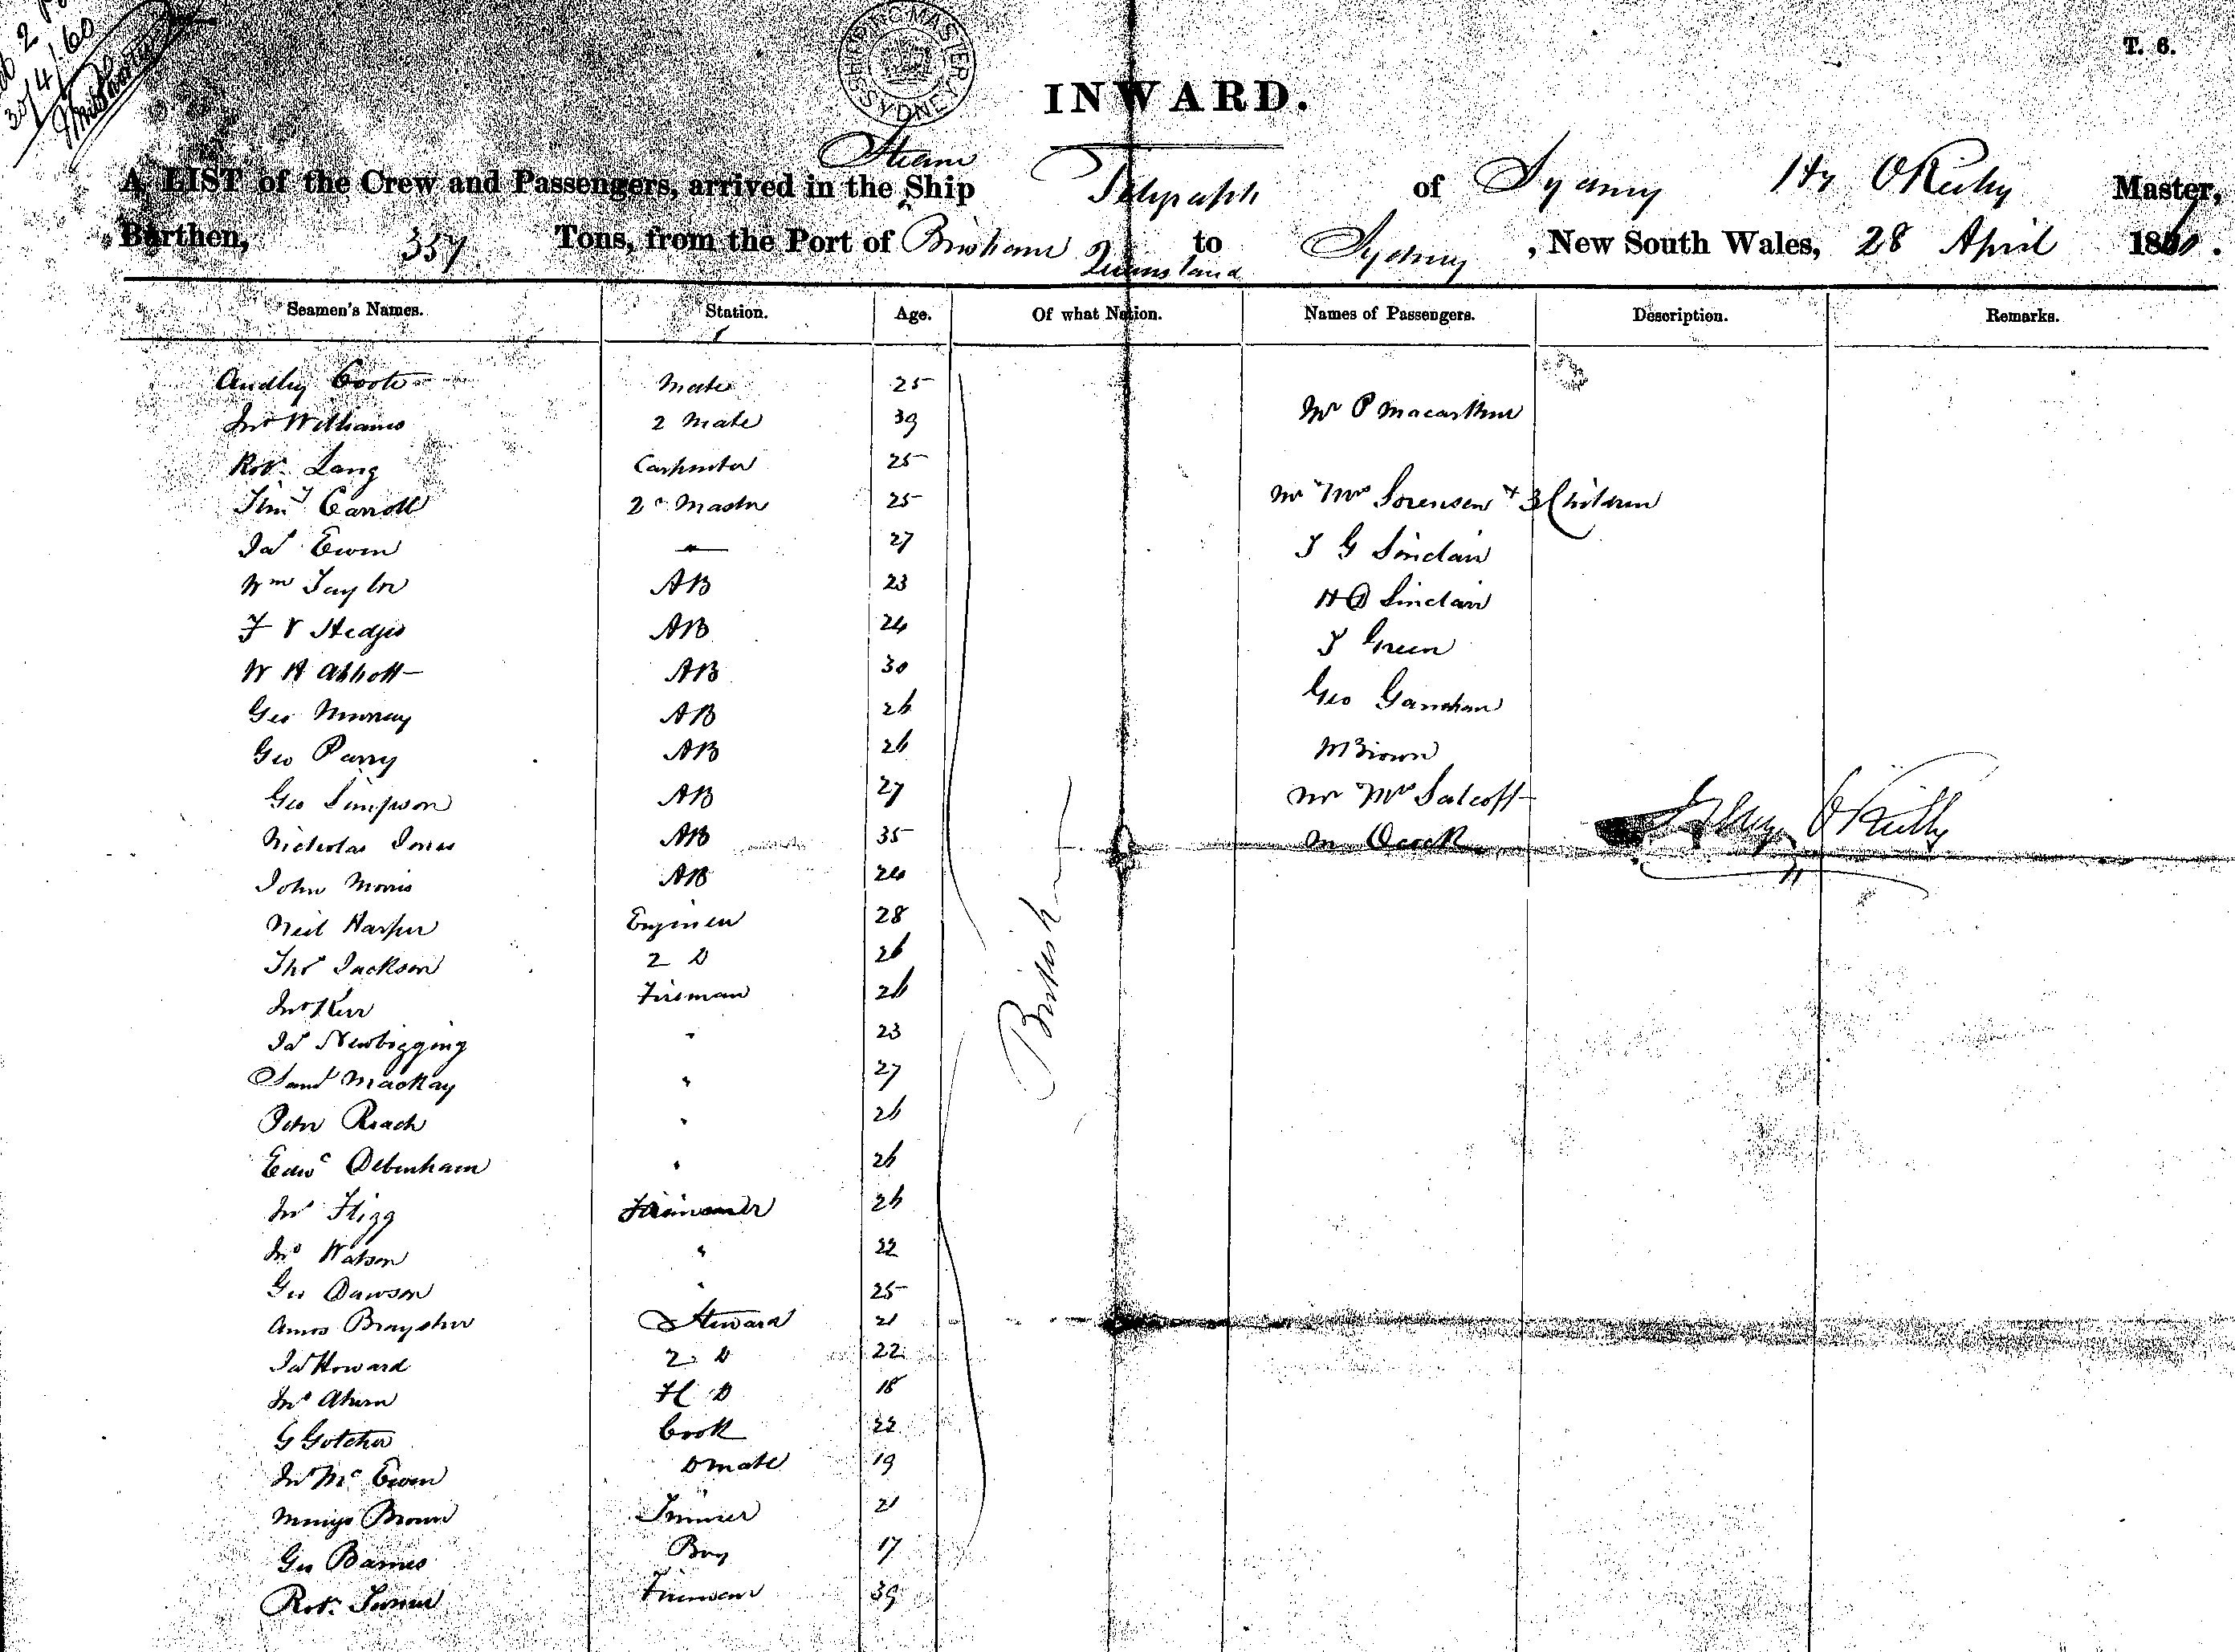 30/4/60
SHIPPING MASTER SYDNEY
T. 6.
INWARD.
Steam
A LIST of the Crew and Passengers, arrived in the Ship Telegraph of Sydney Hy O'Reilly Master,
Burthen, 357 Tons, from the Port of Brisbane Queensland to Sydney, New South Wales, 28 April 1860.
Seamen's Names. Station. Age. Of what Nation. Names of Passengers. Description. Remarks.
Audley Coote Mate 25
Jno Williams 2 Mate 39 Mr P Macarthur
Robt Lang Carpenter 25
Timy Carroll 2r Master 25 Mr & Mrs Sorensen & 3 Children
Jas Ewen " 27 T G Sinclair
Wm Taylor AB 23 H D Sinclair
F V Hedges AB 24 T Green
W H Abbott AB 30
Geo Murray AB 26 Geo
Geo Parry AB 26 M Brown
Geo Simpson AB 27 Mr & Mrs
Nicholas Jones AB 35 M
John Morris AB 24
Henry O'Reilly
Neil Harper Engineer 28
Thos Jackson 2 D 26
Jno Kerr Fireman 26
British
Jas Newbigging " 23
Saml Mackay " 27
John Roach " 26
Edwd Debenham " 26
Jno Fligg 26
Jno Watson " 22
Geo Dawson " 25
Amos Braysher Steward 21
Jas Howard 2 D 22
Jno Ahern H D 18
G Gotcher Cook 22
Jno McEwen D mate 19
Brown Trimmer 21
Geo Barnes Boy 17
Robt Turner Fireman 39